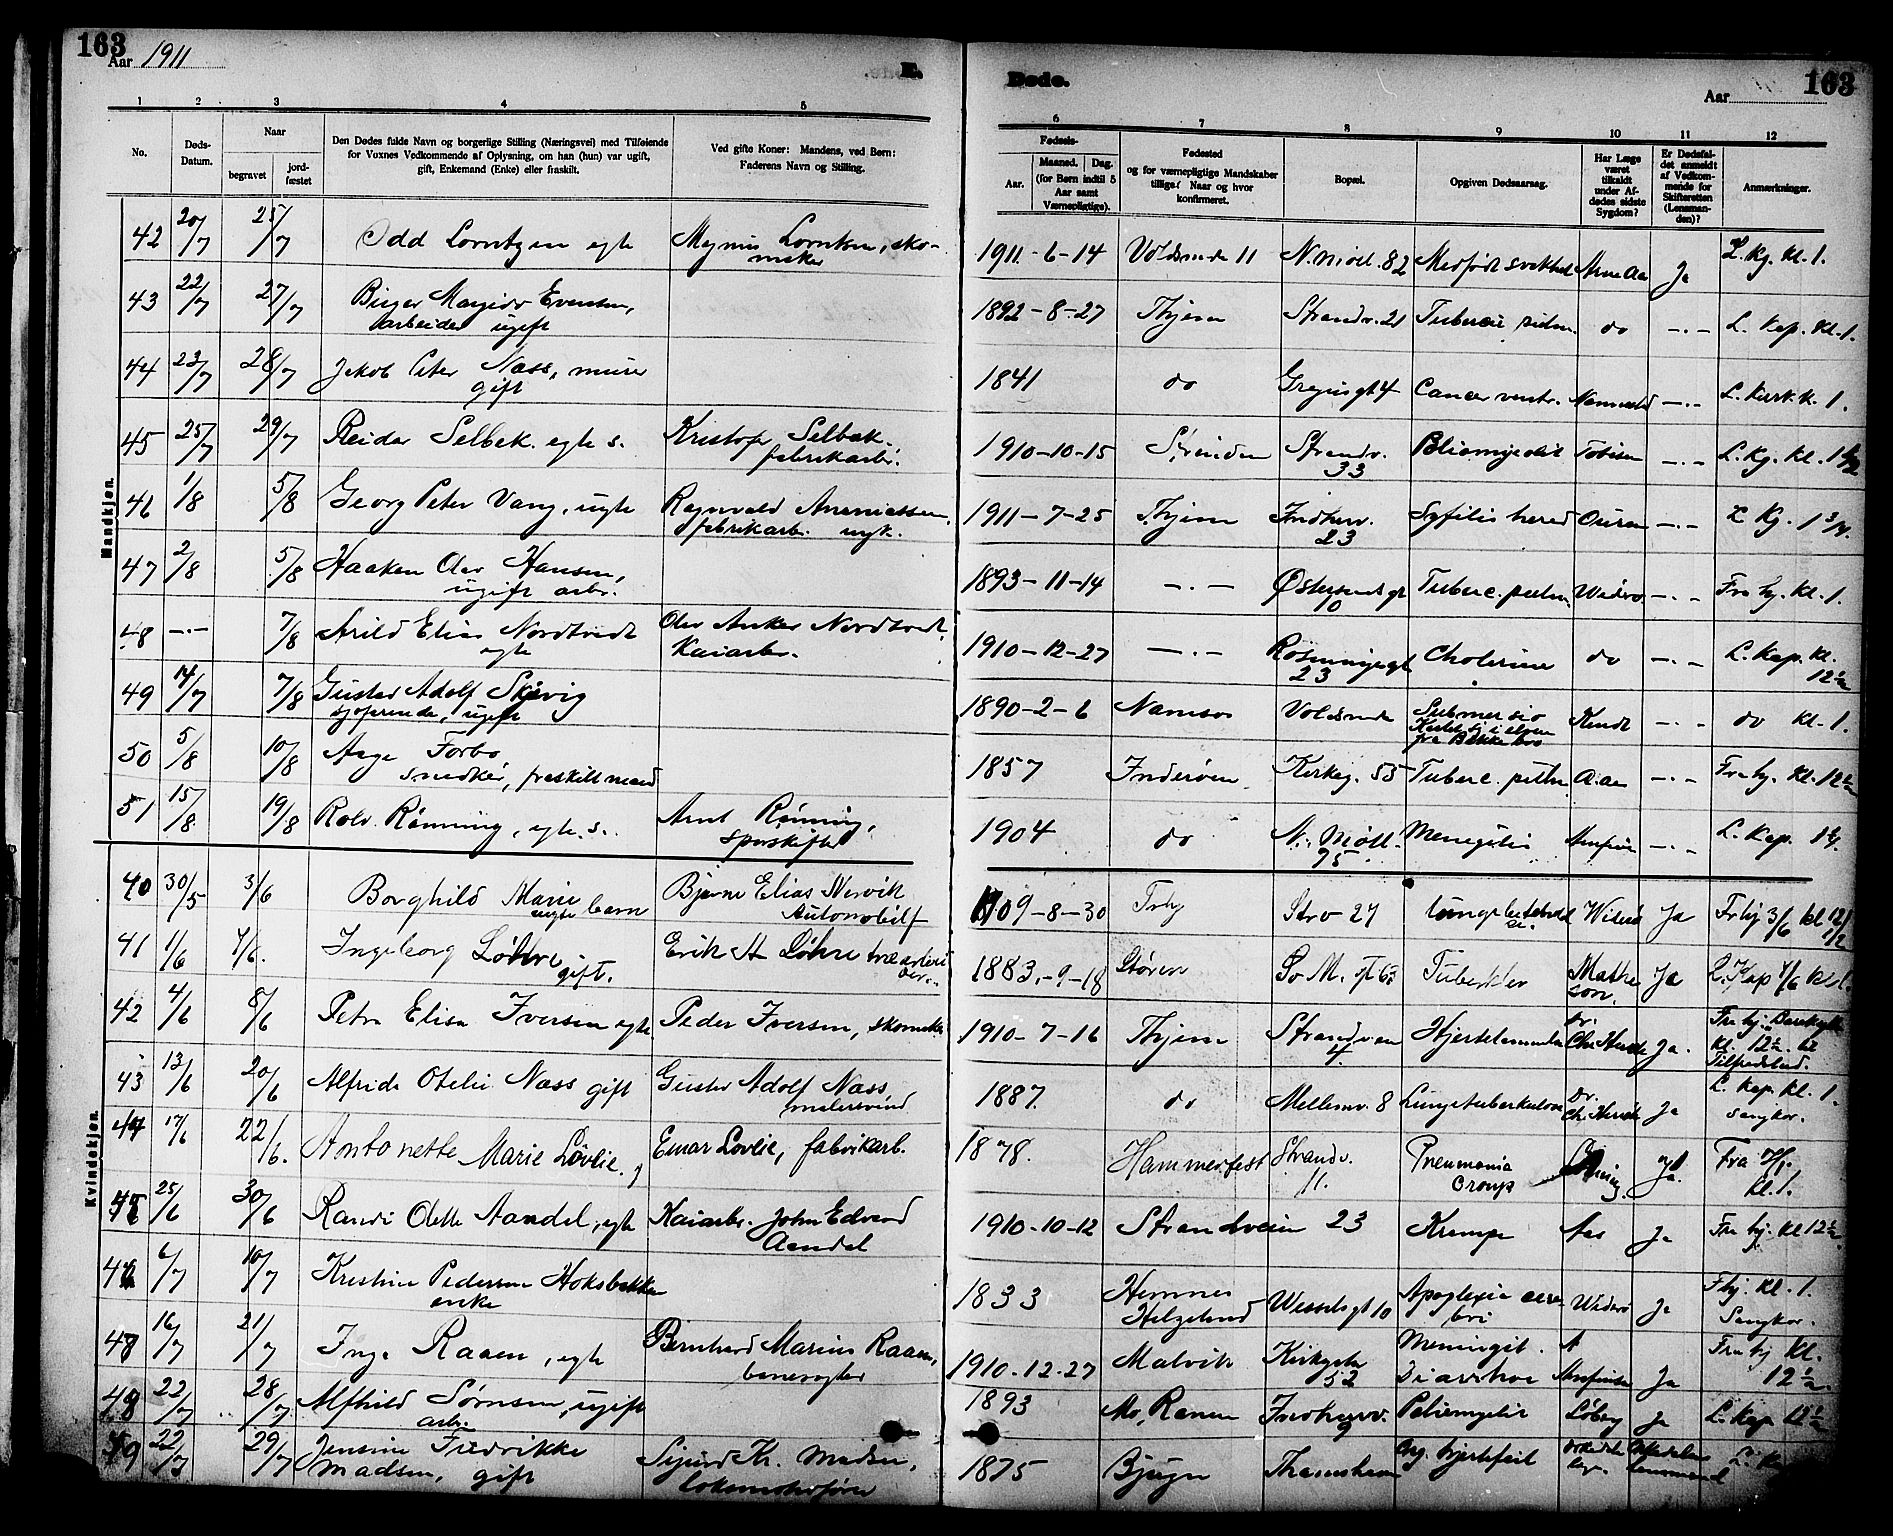 163
Aar 1911
E.
Døde.
Aar
163
1 2 3 4 5 6 7 8 9 10 11 12
No.
Døds-Datum.
Naar
begravet
jord-fæstet
Den Dødes fulde Navn og borgerlige Stilling (Næringsvei) med Tilføiende
for Voxnes Vedkommende af Oplysning, om han (hun) var ugift,
gift, Enkemand (Enke) eller fraskilt.
Ved gifte Koner: Mandens, ved Børn:
Faderens Navn og Stilling.
Fødsels-
Aar.
Maaned. Dag.
(for Børn indtil 5
Aar samt
Værnepligtige).
Fødested
og for værnepligtige Mandskaber
tillige: Naar og hvor
konfirmeret.
Bopæl.
Opgiven Dødsaarsag.
Har Læge
været
tilkaldt
under Af-
dødes sidste
Sygdom?
Er Dødsfal-
det anmeldt
af Vedkom-
mende for
Skifteretten
(Lensman-
den)?
Anmærkninger.
Mandkjøn.
42 20/7 25/7 Odd Lorntzen egte Lorntsen, sko-
maker
1911-6-14 11 N. Møll. 82 Medfødt svakhed Ja L. Kg. Kl. 1.
43 22/7 27/7 Birger Evensen,
arbeider ugift
1892-8-27 Thjem Strandv. 21 do -.- L. Kap. Kl. 1.
44 23/7 28/7 Jakob Peter Næss, murer
gift
1841 do 4 Cancer ventr. -.- 1.
45 25/7 29/7 Reidar Selbek. egte s. Kristofer Selbæk.
fabrikarb.
1910-10-15 Strinden Strandv.
33 Tobisen -.- L. Kg. Kl. 1 1/2
46 1/8 5/8 Georg Peter Vang, uegte Ragnvald
fabrikarb. ugk.
1911-7-25 Thjem Indherv.
23 Syfilis hered -.- L Kg. 1
47 2/8 5/8 Haaken Olav Hansen,
ugift arb.
1893-11-14 -.- Østersundsgt Widerø -.- Fra hj. Kl. 1.
48 -.- 7/8 Arild Elias Nordtvedt
egte
Olav Anker Nordtvedt,
Kaiarb.
1910-12-27 -.- 23 Cholerine do -.- L. Kap. Kl.
12 1/2
49 14/7 7/8 Gustav Adolf Skjevig
sjøfarende, ugift
1890-2-6 Namsos Submersio
Kastet sig i elven
fra Bakke bro
-.- do Kl. 1.
50 5/8 10/8 Aage Forbo
snedker, fraskilt mand
1857 Inderøen Kirkeg. 55 -.- Fra hj. Kl. 12 1/2
51 15/8 19/8 Rolv Rønning, egte s. Arnt Rønning,
sporskifter
1904 do N. Møll.
95 Meningitis -.- L. Kap.
Kvindekjøn.
40 30/5 3/6 Borghild Marie
uegte barn
Bjarne Elias Nervik
Automobilf
1909-8-30 Trhj 27 Ja Fr hj 3/6 Kl 12 1/2
41 1/6 7/6. Ingeborg Løhre
gift.
Erik Løhre
1883-9-18 Støren Mathe
son. Ja L. Kap 7/6 Kl 1.
42 4/6 8/6 Petra Elisa Iversen egte Peder Iversen, skomaker
1910-7-16 Thjem Strandveien
4. Ja. Fra hj.
Kl. 12 1/2 til
Tilfredshed.
43 13/6 20/6 Alfride Otelie Næss gift Gustav Adolf Næss
malersvend
1887. do Mellemv. 8 Lungetuberkulose Ja L. Kap. Kl. 1.
Sangkor.
44 17/6 22/6. Antonette Marie Løvlie. g Einar Løvlie, fabrikarb.
1878. Hammerfest Strandv.
11. Pneumonia
croup Ja. Fra Hj.
Kl. 1.
45 25/6 30/6 Randi Odette Aandal, egte Kaiarb. John Edvard
Aandal
1910-10-12 Strandveien 23 Krampe Aas Ja Fra hj. Kl 12 1/2
46 6/7 10/7 Kristine Pedersen Hoksbakken
enke
1833 Hemnes
Helgeland Wesselsgt 10 Apoplexia cere
bri Widerø Ja F hj. Kl. 1.
Sangkor.
47 16/7 21/7 Inga Raaen, egte Bernhard Marius Raaen,
banevogter
1910.12.27 Malvik Kirkegata
52 Meningit.
Diarrhoe Ja Fra hj Kl.
12 1/2
48 22/7 28/7 Alfhild Sørnsen, ugift
arb.
1893 Mo, Ranen Indherv.
9 Løberg Ja L. Kap 12 1/2
49 22/7 29/7 Jensine Fredrikke
Madsen, gift
Sigurd Kr. Madsen,
lokomotivfører
1875 Bjugn Thamshavn Org. hjertefeil